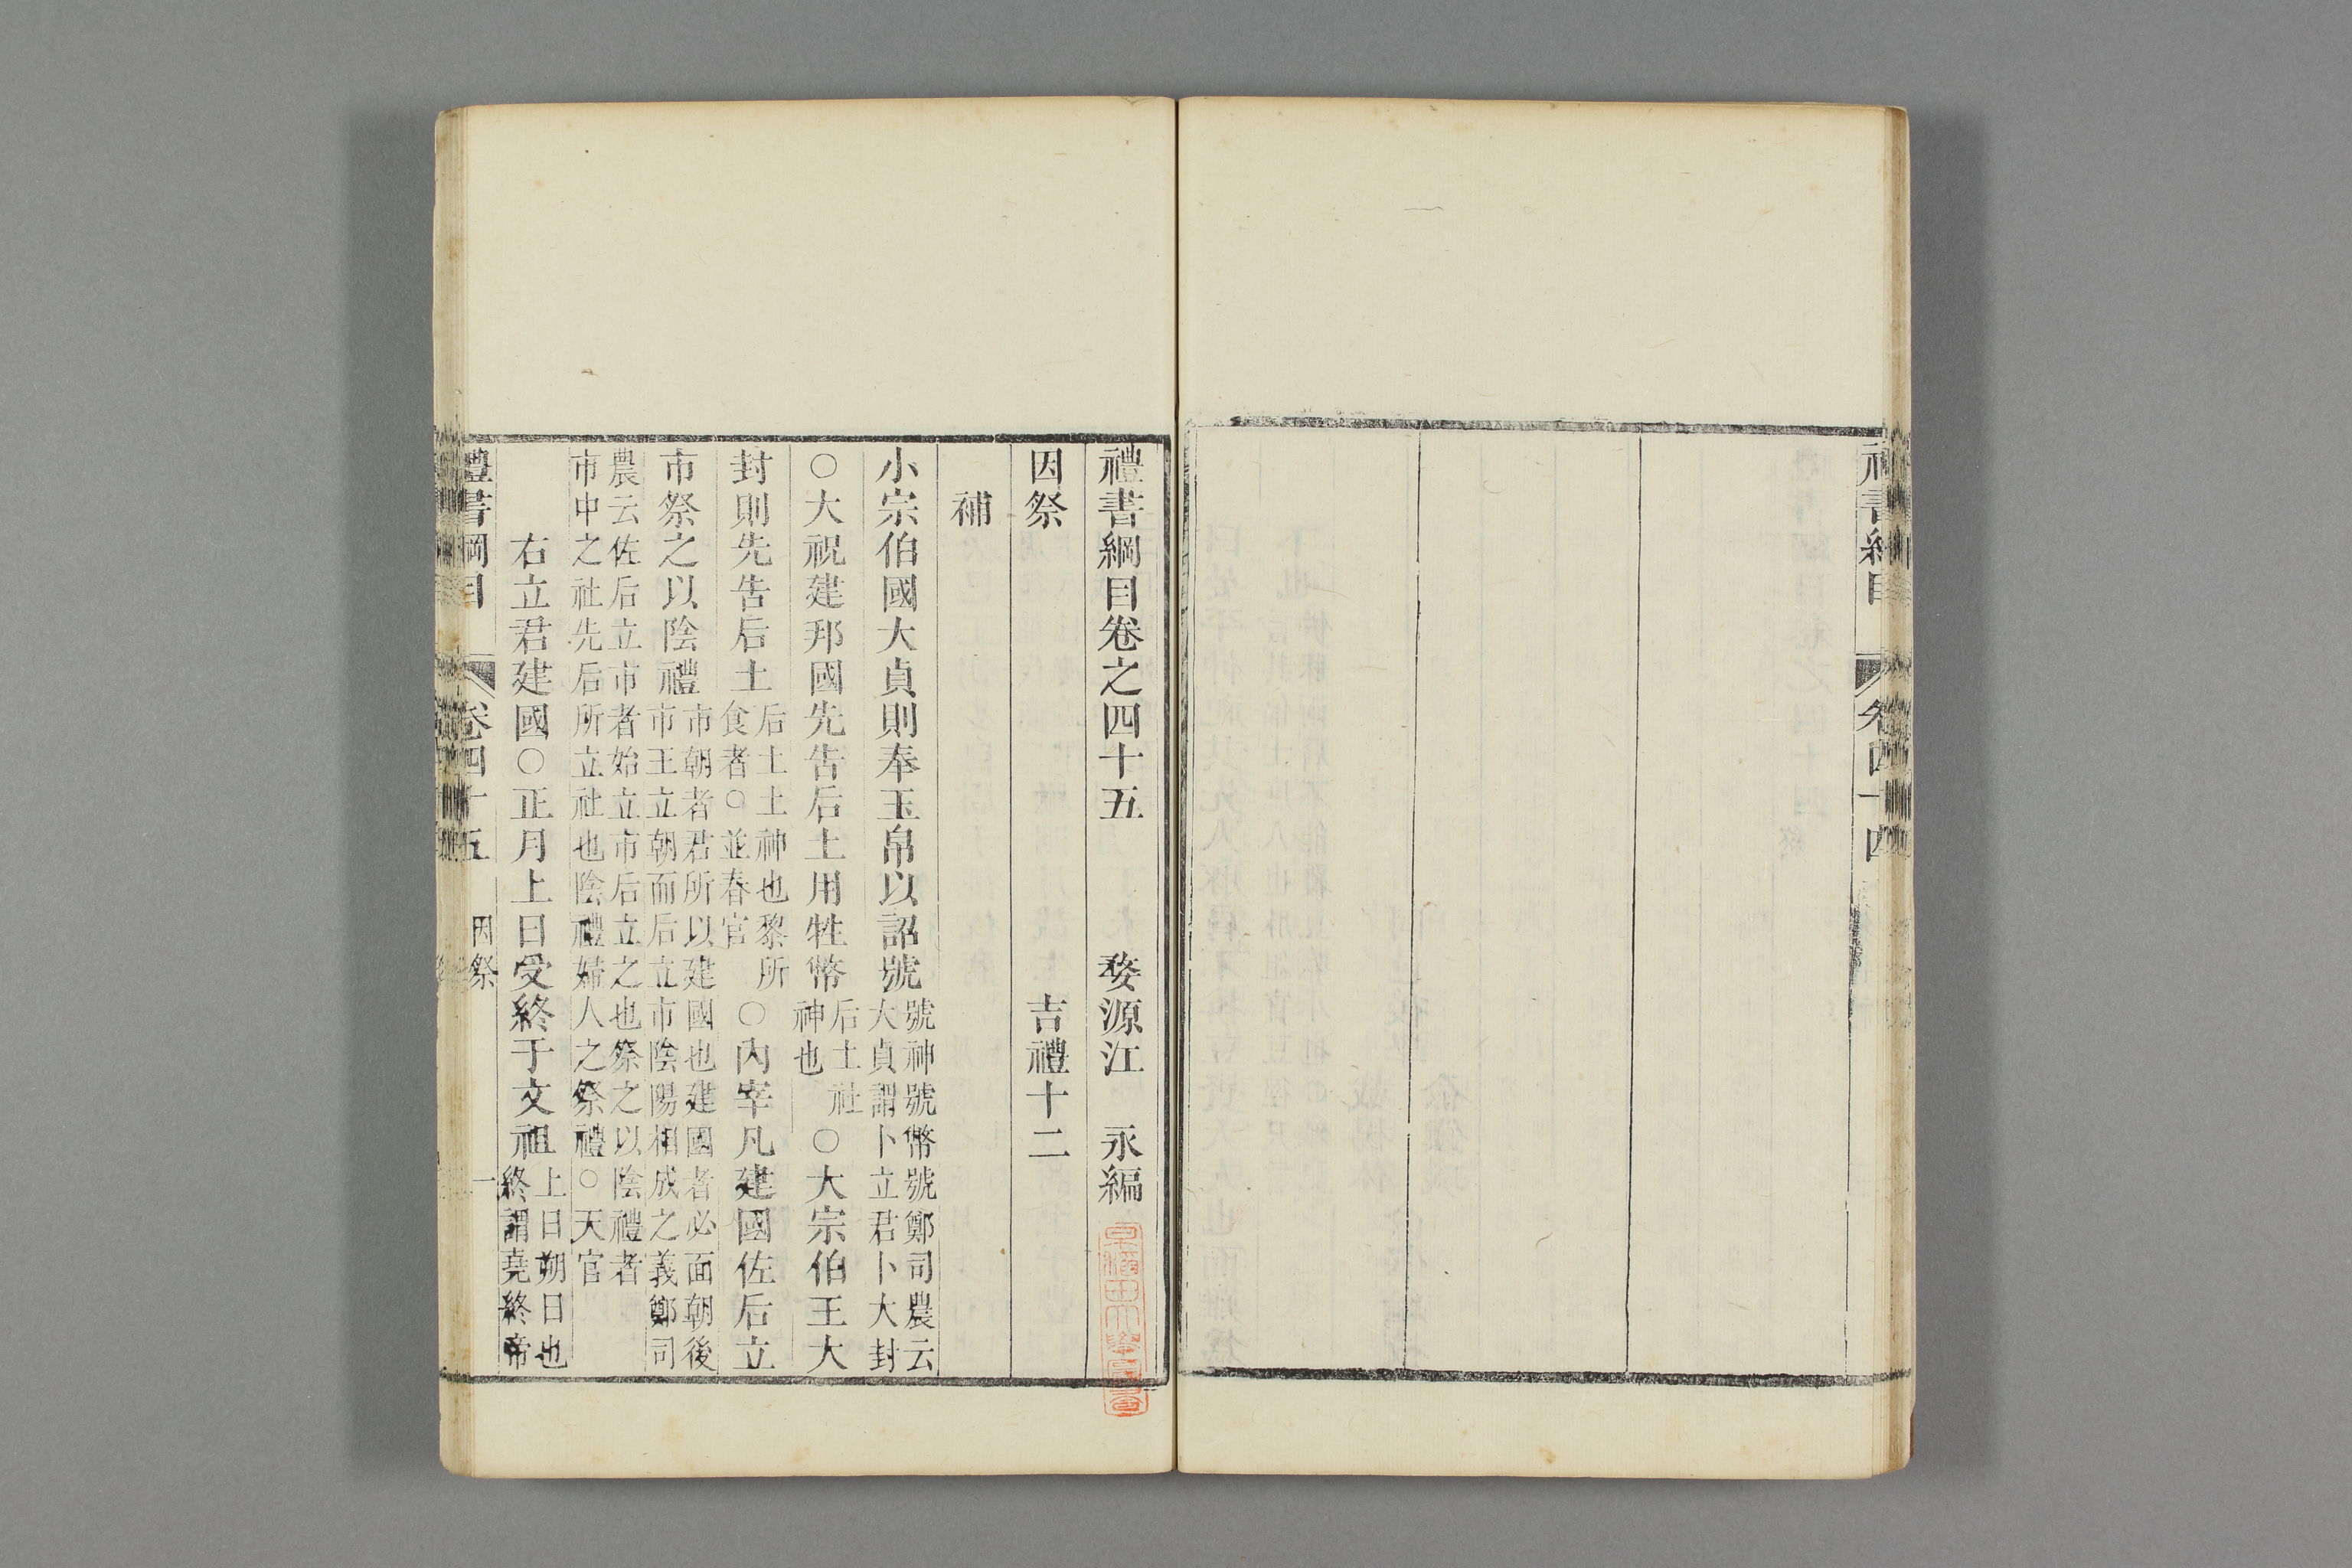 禮書綱目 卷四十四
禮書綱目卷之四十五 婺源江 永編
因祭 吉禮十二
補
小宗伯國大貞則奉玉帛以詔號號神號幣號鄭司農云大貞謂卜立君卜大封
○大祝建邦國先告后土用牲幣后土社神也○大宗伯王大
封則先告后土后土土神也黎所食者○並春官○內宰凡建國佐后立
市祭之以陰禮市朝者君所以建國也建國者必面朝後市王立朝而后立市陰陽相成之義鄭司
農云佐后立市者始立市后立之也祭之以陰禮者市中之社先后所立社也陰禮婦人之祭禮○天官
右立君建國○正月上日受終于文祖上日朔日也終謂堯終帝
禮書綱目 卷四十五 因祭 一